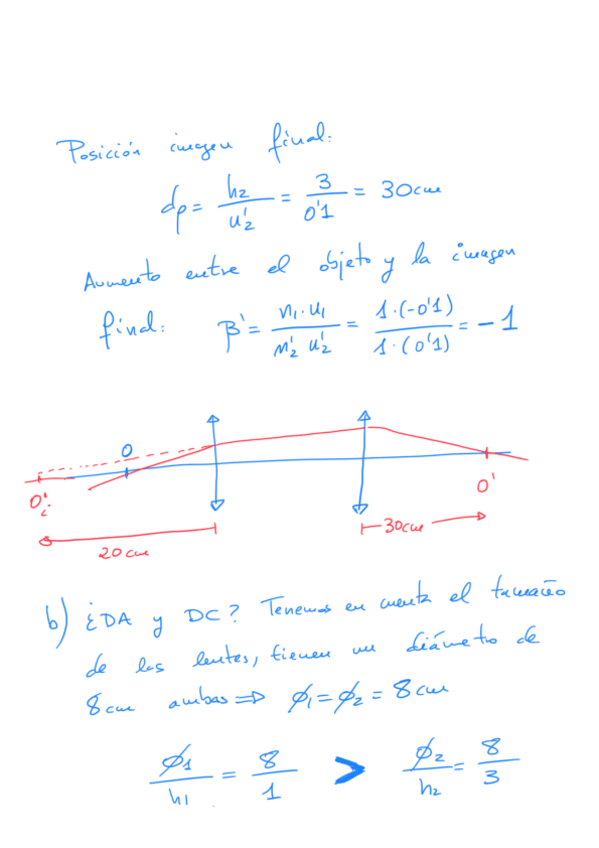 Posición imagen final:
dp = h2 / u'2 = 3 / 0'1 = 30cm
Aumento entre el objeto y la imagen
final: β' = n1 · u1 / n'2 u'2 = 1 · (-0'1) / 1 · (0'1) = -1
O
O'i
O'
30cm
20 cm
b) ¿DA y DC? Tenemos en cuenta el tamaño
de las lentes, tienen un diámetro de
8cm ambas ⇒ ϕ1 = ϕ2 = 8cm
ϕ1 / h1 = 8 / 1 > ϕ2 / h2 = 8 / 3